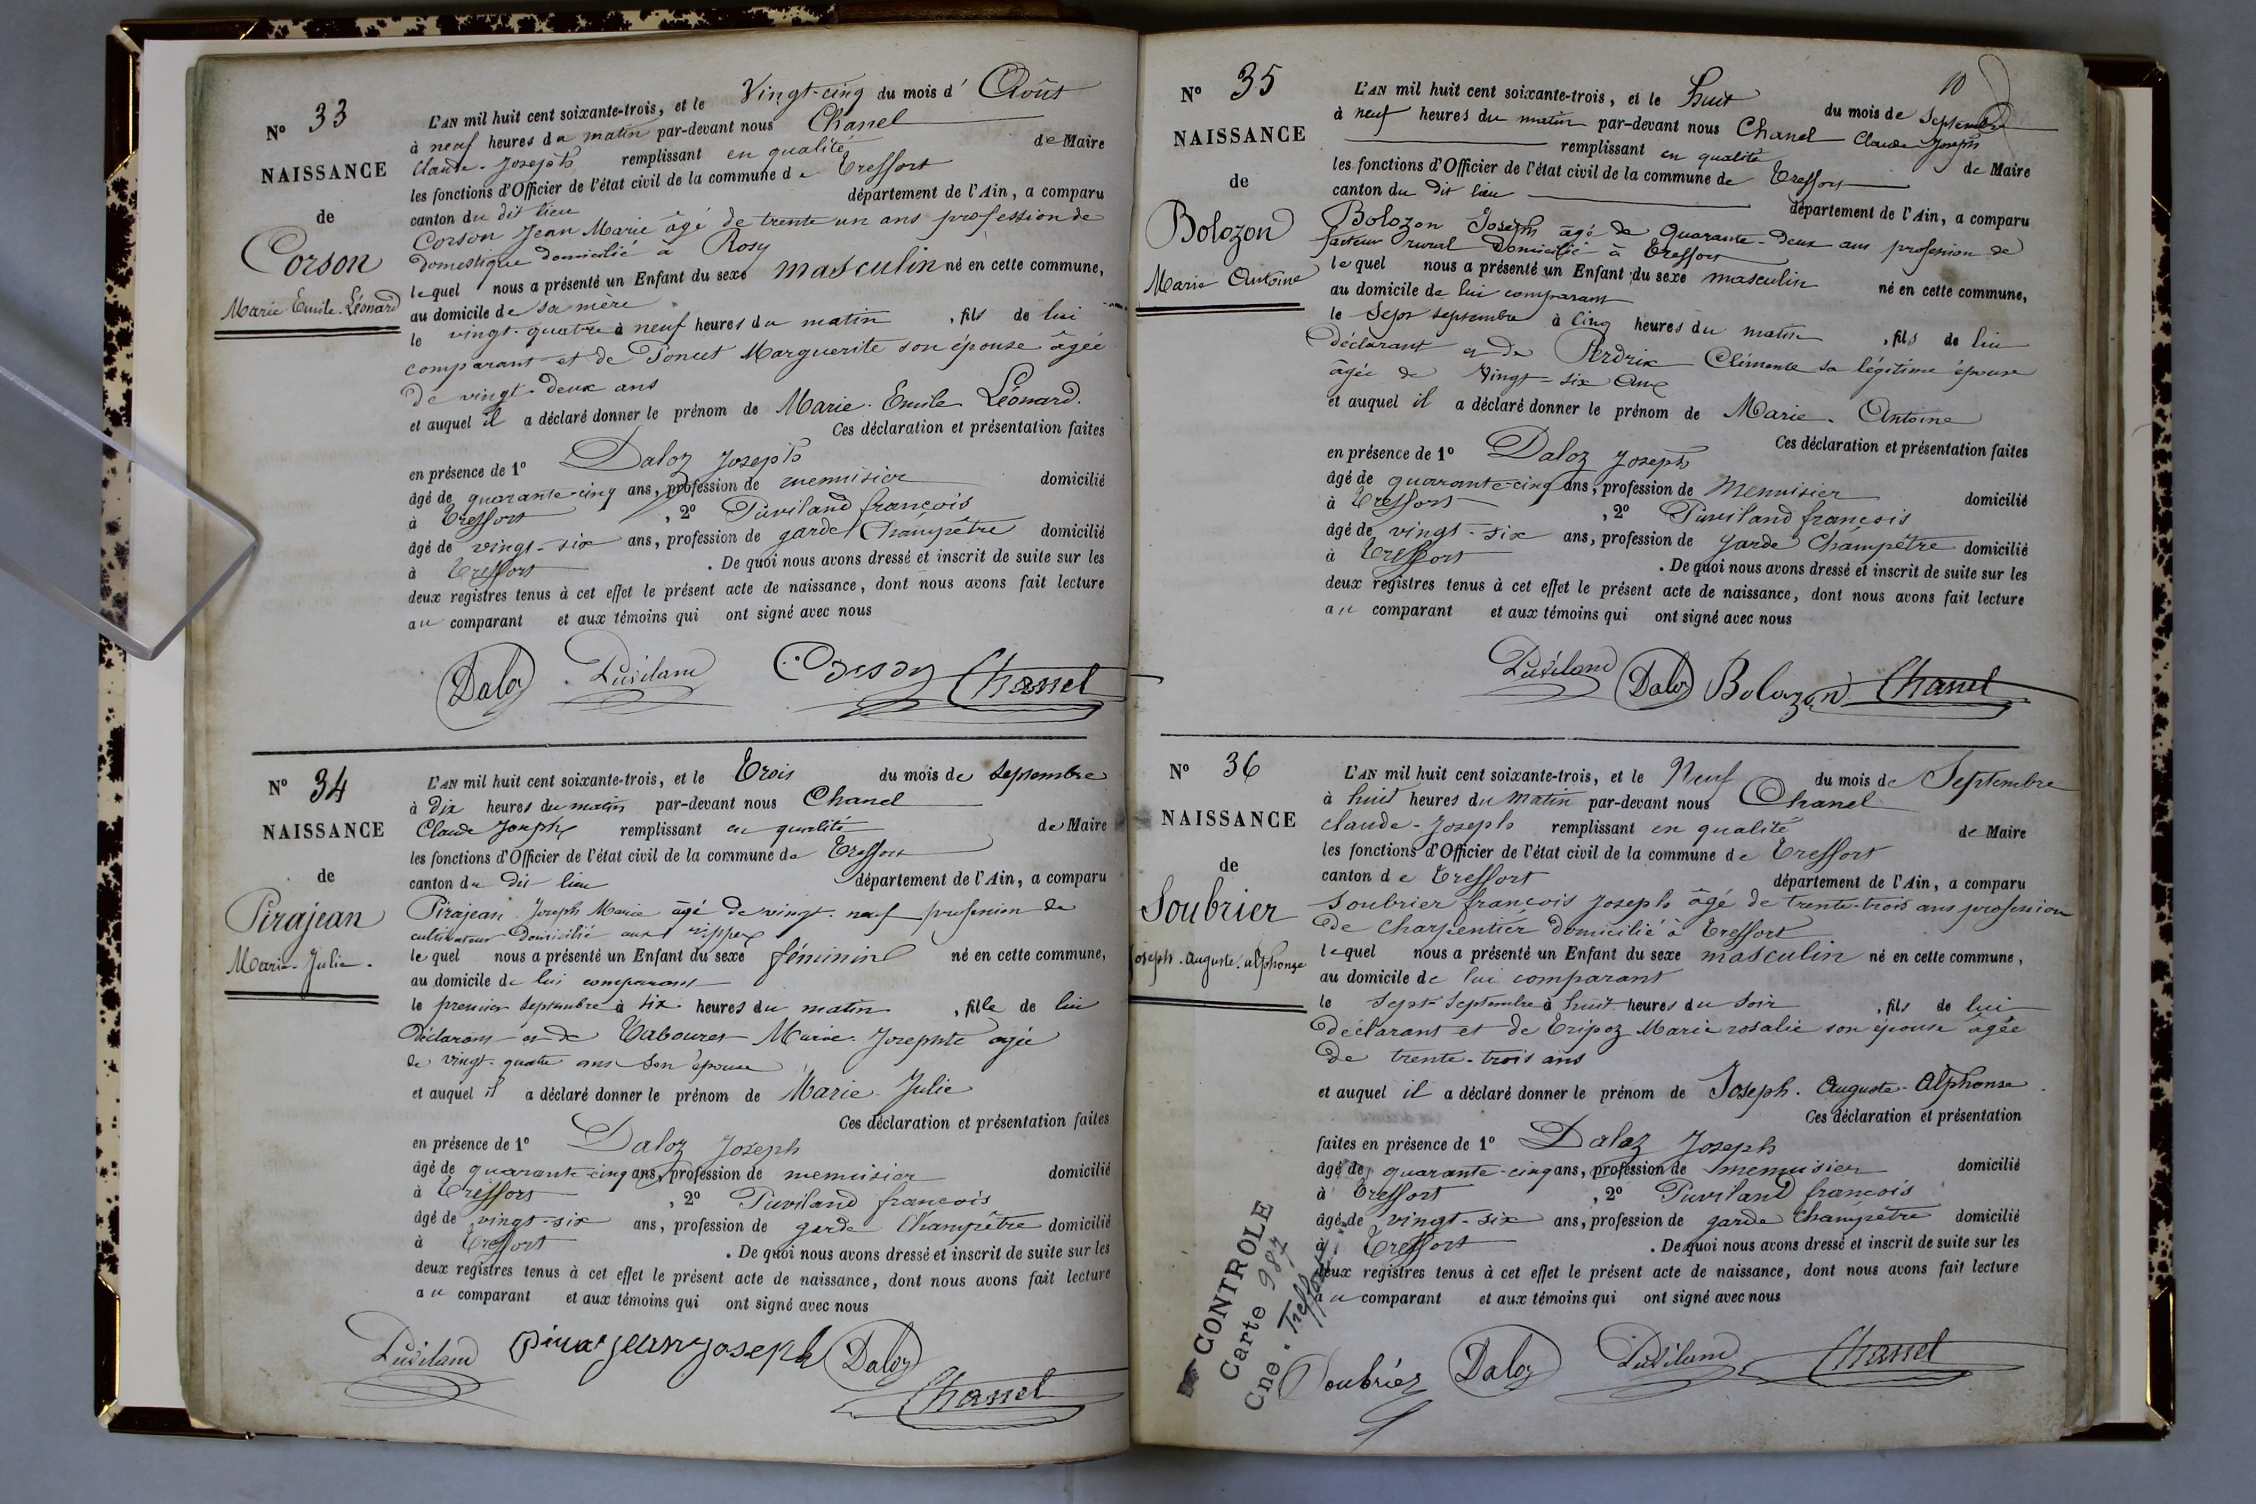 N° 33
NAISSANCE
de
Corson
Marie Emile Léonard
L'AN mil huit cent soixante-trois, et le Vingt-cinq du mois d' Août
à neuf heures du matin par-devant nous Chanel
Claude-Joseph remplissant en qualité de Maire
les fonctions d'Officier de l'état civil de la commune de Treffort
canton du dit lieu département de l'Ain, a comparu
Corson Jean Marie âgé de trente un ans profession de
domestique domicilié à Rosy
lequel nous a présenté un Enfant du sexe masculin né en cette commune,
au domicile de sa mère
le vingt-quatre à neuf heures du matin, fils de lui
comparant et de Poncet Marguerite son épouse âgée
de vingt-deux ans
et auquel il a déclaré donner le prénom de Marie-Emile Léonard.
Ces déclaration et présentation faites
en présence de 1° Daloz Joseph
âgé de quarante-cinq ans, profession de menuisier domicilié
à Treffort, 2° Puviland françois
âgé de vingt-six ans, profession de garde Champêtre domicilié
à Treffort. De quoi nous avons dressé et inscrit de suite sur les
deux registres tenus à cet effet le présent acte de naissance, dont nous avons fait lecture
au comparant et aux témoins qui ont signé avec nous
Daloz Puviland Corson Chanel
N° 34
NAISSANCE
de
Pirajean
Marie-Julie.
L'AN mil huit cent soixante-trois, et le Trois du mois de Septembre
à dix heures du matin par-devant nous Chanel
Claude Joseph remplissant en qualité de Maire
les fonctions d'Officier de l'état civil de la commune de Treffort
canton du dit lieu département de l'Ain, a comparu
Pirajean Joseph Marie âgé de vingt-neuf profession de
cultivateur domicilié aux rippes
lequel nous a présenté un Enfant du sexe féminin né en cette commune,
au domicile de lui comparant
le premier septembre à six heures du matin, fille de lui
déclarant et de Tabouret Marie Josephte agée
de vingt-quatre ans son épouse
et auquel il a déclaré donner le prénom de Marie Julie
Ces déclaration et présentation faites
en présence de 1° Daloz Joseph
âgé de quarante-cinq ans, profession de menuisier domicilié
à Treffort, 2° Puviland françois
âgé de vingt-six ans, profession de garde Champêtre domicilié
à Treffort. De quoi nous avons dressé et inscrit de suite sur les
deux registres tenus à cet effet le présent acte de naissance, dont nous avons fait lecture
au comparant et aux témoins qui ont signé avec nous
Puviland pirajean joseph Daloz
Chanel
10
N° 35
NAISSANCE
de
Bolozon
Marie Antoine
L'AN mil huit cent soixante-trois, et le huit du mois de Septembre
à neuf heures du matin par-devant nous Chanel Claude Joseph
remplissant en qualité de Maire
les fonctions d'Officier de l'état civil de la commune de Treffort
canton du dit lieu département de l'Ain, a comparu
Bolozon Joseph âgé de quarante-deux ans profession de
facteur rural domicilié à Treffort
lequel nous a présenté un Enfant du sexe masculin né en cette commune,
au domicile de lui comparant
le Sept septembre à cinq heures du matin, fils de lui
déclarant et de Perdrix Clémente sa légitime épouse
âgée de Vingt-six ans
et auquel il a déclaré donner le prénom de Marie-Antoine
Ces déclaration et présentation faites
en présence de 1° Daloz Joseph
âgé de quarante-cinq ans, profession de Menuisier domicilié
à Treffort, 2° Puviland françois
âgé de vingt-six ans, profession de garde Champêtre domicilié
à Treffort. De quoi nous avons dressé et inscrit de suite sur les
deux registres tenus à cet effet le présent acte de naissance, dont nous avons fait lecture
au comparant et aux témoins qui ont signé avec nous
Puviland Daloz Bolozon Chanel
N° 36
NAISSANCE
de
Soubrier
Joseph-Auguste-alphonse
L'AN mil huit cent soixante-trois, et le Neuf du mois de Septembre
à huit heures du matin par-devant nous Chanel
Claude-Joseph remplissant en qualité de Maire
les fonctions d'Officier de l'état civil de la commune de Treffort
canton de Treffort département de l'Ain, a comparu
Soubrier françois Joseph âgé de trente-trois ans profession
de charpentier domicilié à Treffort
lequel nous a présenté un Enfant du sexe masculin né en cette commune,
au domicile de lui comparant
le sept Septembre à huit heures du soir, fils de lui
déclarant et de Tripoz Marie rosalie son épouse âgée
de trente-trois ans
et auquel il a déclaré donner le prénom de Joseph-Auguste-Alphonse
Ces déclaration et présentation
faites en présence de 1° Daloz Joseph
âgé de quarante-cinq ans, profession de menuisier domicilié
à Treffort, 2° Puviland françois
âgé de vingt-six ans, profession de garde Champêtre domicilié
à Treffort. De quoi nous avons dressé et inscrit de suite sur les
deux registres tenus à cet effet le présent acte de naissance, dont nous avons fait lecture
au comparant et aux témoins qui ont signé avec nous
Soubriér Daloz Puviland Chanel
CONTROLE
Carte 987
Cne. Treffort